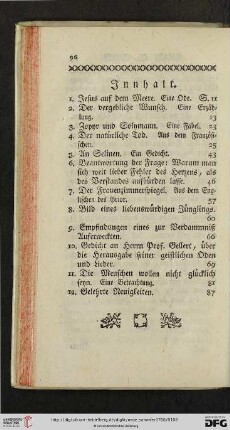 96
Innhalt.
1. Jesus auf dem Meere. Eine Ode. S. 11
2. Der vergebliche Wunsch. Eine Erzäh-
lung. 23
3. Zephyr und . Eine Fabel. 24
4. Der natürliche Tod. Aus dem Französi-
schen. 25
5. An Selinen. Ein Gedicht. 43
6. Beantwortung der Frage: Warum man
sich weit lieber Fehler des Herzens, als
des Verstandes aufbürden lasse. 46
7. Der Frauenzimmerspiegel. Aus des Eng-
lischen des Prior. 57
8. Bild eines liebenswürdigen Jünglings.
60
9. Empfindungen eines zur Verdammniß
Auferweckten. 66
10. Gedicht an Herrn Prof. Gellert, über
die Herausgabe seiner geistlichen Oden
und Lieder. 69
11. Die Menschen wollen nicht glücklich
seyn. Eine Betrachtung. 81
12. Gelehrte Neuigkeiten. 87
DFG